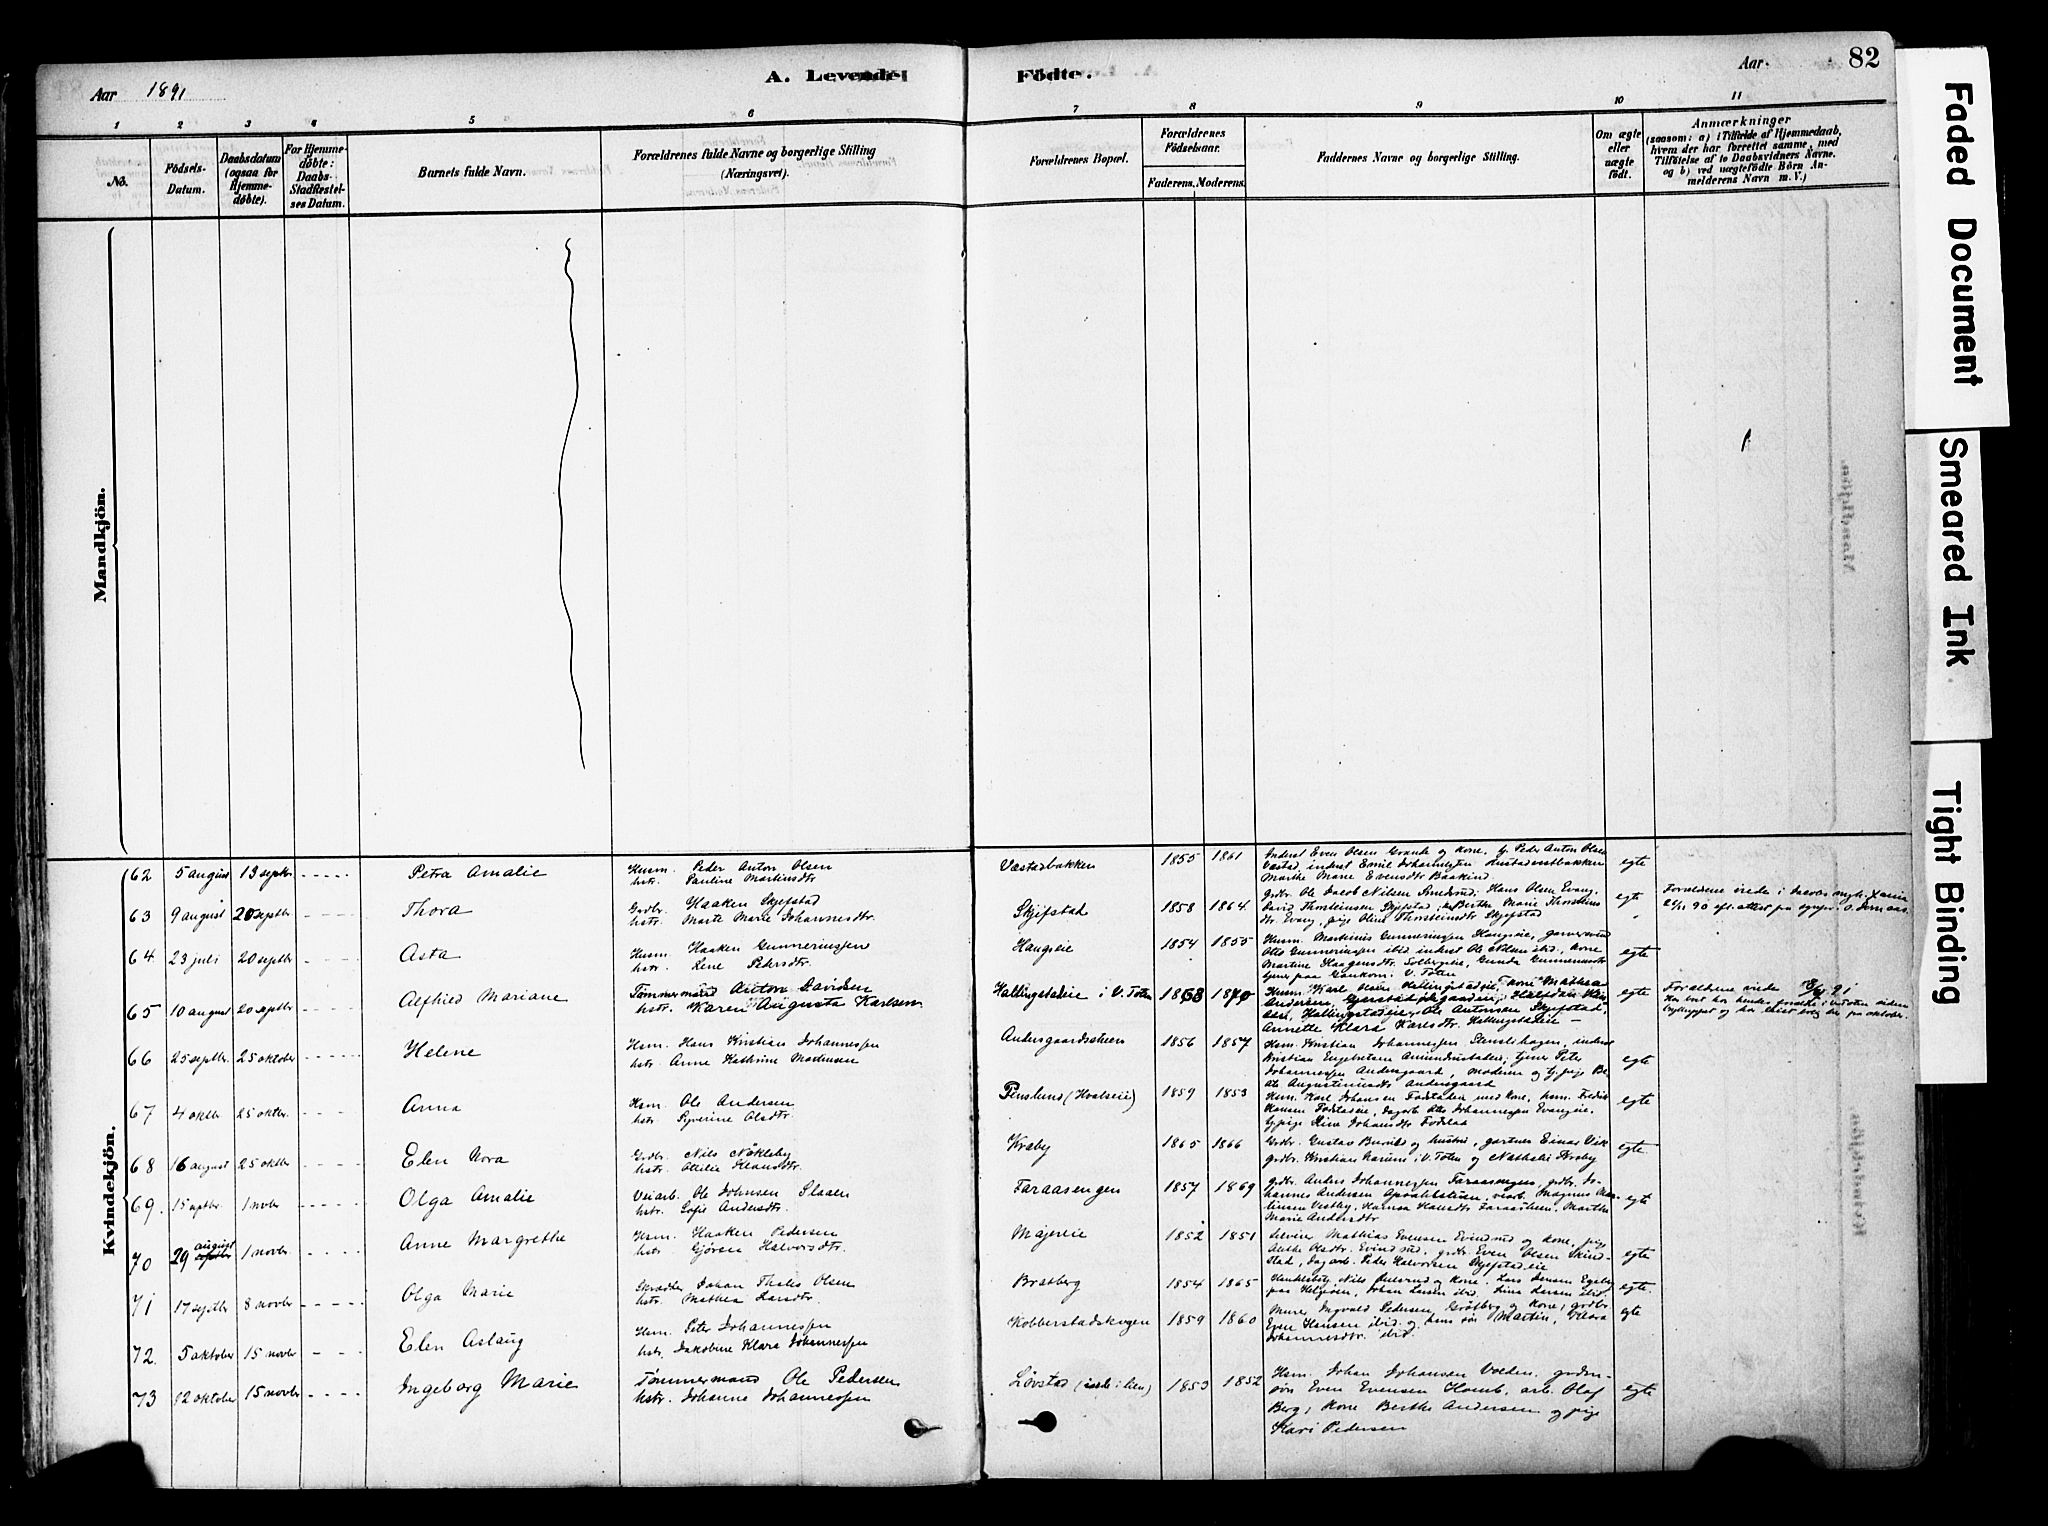 Aar 1891
A. Levende
Födte.
Aar.
82
1 2 3 4 5 6 7 8 9 10 11
No.
Födsels-
Datum.
Daabsdatum
(ogsaa for
Hjemme-
døbte).
For Hjemme-
døbte:
Daabs-
Stadfestel-
ses Datum.
Barnets fulde Navn.
Forældrenes fulde Navne og borgerlige Stilling
(Næringsvei).
Forældrenes Bopæl.
Forældrenes
Födselsaar.
Faderens. Moderens.
Faddernes Navne og borgerlige Stilling.
Om ægte
eller
uægte
födt.
Anmærkninger
(saasom: a) i Tilfælde af Hjemmedaab,
hvem der har forrettet samme, med
Tilföielse af to Daabsvidners Navne,
og b) ved uægtefödte Börn An-
melderens Navn m. V.)
Mandkjön.
Kvindekjön.
62 5 august 13 septbr. Petra Amalie
Husm. Peder Anton Olsen
hstr. Pauline Martinsdtr
Væstadbakken 1855 1861
Inderst Even Olsen Granli og kone, tj. Peder Anton Olsen
Marthe Marie Evensdtr Baakind
egte
63 9 august 20 septbr Thora
Grdbr. Haaken Skjefstad
hstr. Marte Marie Johannesdtr.
Skjefstad 1858 1864
Grdbr. Ole Jacob Nilsen Smedsrud; Hans Olsen Evang,
David Thorsteinsen Skjefstad; Berthe Marie Thorsteins
dtr. Evang, pige Oline Thorsteinsdtr Skjefstad
egte
64 23 juli 20 septbr Asta
Husm. Haaken Gunneriussen
hstr. Lene Pedersdtr.
Haugseie 1854 1855
Husm. Martinius Gunneriussen Haugseie, garversvend
Otto Gunneriussen ibid inderst Ole Nilsen ibid, kone
Martine Haagensdtr. Solbergeie, Gunda Gunneriusdtr
tjener paa Gaukom i V. Toten
egte
65 10 august 20 septbr Alfhied Mariane
Tømmermand Anton Davidsen
hstr. Karen Augusta Karlsen
Hallingstadeie i V. Toten 1868 1870
Husm. Karl Olsen Hallingstadeie, kone Mathea
Andersen, Hallingstadeie, Ole Antonsen Skjefstad,
Annette Klara Karlsdtr. Hallingstadeie
egte
66 25 septbr. 25 oktober Helene
Hsm. Hans Kristian Johannessen
hstr. Anne Kathrine Madensen
Andersgaardssteen 1856 1857
Hsm. Kristian Johannessen Stenslihagen, inderst
Kristian Engebretsen Amundrustadeie; tjener Peter
Johannessen Andersgaard, Moderen og tj. pige Be-
ate Augustinusdtr Andersgaard
egte
67 4 oktbr 25 oktbr. Anna
Hsm. Ole Andersen
hstr. Syverine Olsdtr.
Penslund (Hvalseie) 1859 1853
Hsm. Karl Johansen Fodstadeie med kone, hsm. Fredrik
Hansen Fodstadeie, dagarb. Otto Johannessen Evangeie,
tj. pige Stine Johansdtr Fodstad
egte
68 16 august 25 oktbr Elen Nora
Grdbr. Nils Nøkleby
hstr. Otilie Hansdtr.
Kraby 1865 1866
Grdbr. Gustav Burud og hustru, gartner Einar Vik
grdbr. Kristian Narum i V. Toten og Nathalie Kraby
egte.
69. 15 septbr. 1 novbr Olga Amalie
Veiarb. Ole Johnsen Slaaen
hstr. Sofie Andersdtr.
Faraasengen 1857 1869
grdbr. Anders Johannessen Faraasengen, grdbr. Jo-
hannes Andersen, veiarb. Magnus Mar-
tinsen Vestby, Hanna Hansdtr Faraasteen, Marthe
Marie Andersdtr
egte
70 29 august 1 novbr. Anne Margrethe
Hsm. Haaken Pedersen
hstr. Gjøren Halvorsdtr.
Majereie 1852 1851
Selveier Mathias Evensen Evindsrud og kone, pige
Anthe Olsdtr. Evindsrud, grdbr. Even Olsen Skind-
stad, dagarb. Peder Halvorsen Skjefstadeie
egte
71 17 septbr 8 novbr Olga Marie
Skrædder Johan Thales Olsen
hstr. Mathea Larsdtr.
Bratberg 1854 1865
paa Helgøen, Johan Larsen ibid. Lina Larsen ibid.
egte.
72. 5 oktober 15 novbr Elen Aslaug
Hsm. Peter Johannessen
hstr. Jakobine Klara Johannessen
Kobberstadskogen 1859 1860
Murer Ingvald Pedersen, Grøtberg og kone, grdbr.
Even Hansen ibid. og hans søn Martin, Klara
Johannesdtr. ibid.
egte
73 12 oktober 15 novbr Ingeborg Marie
Tømmermand Ole Pedersen
hstr. Johanne Johannessen
Løvstad (inde i lien) 1853 1852
Hsm. Johan Johansen Volden, grdm.-
søn Even Evensen Homb, arb. Olaf
Berg; kone Berthe Andersen og pige
Kari Pedersen
egte
Faded Document
Smeared Ink
Tight Binding